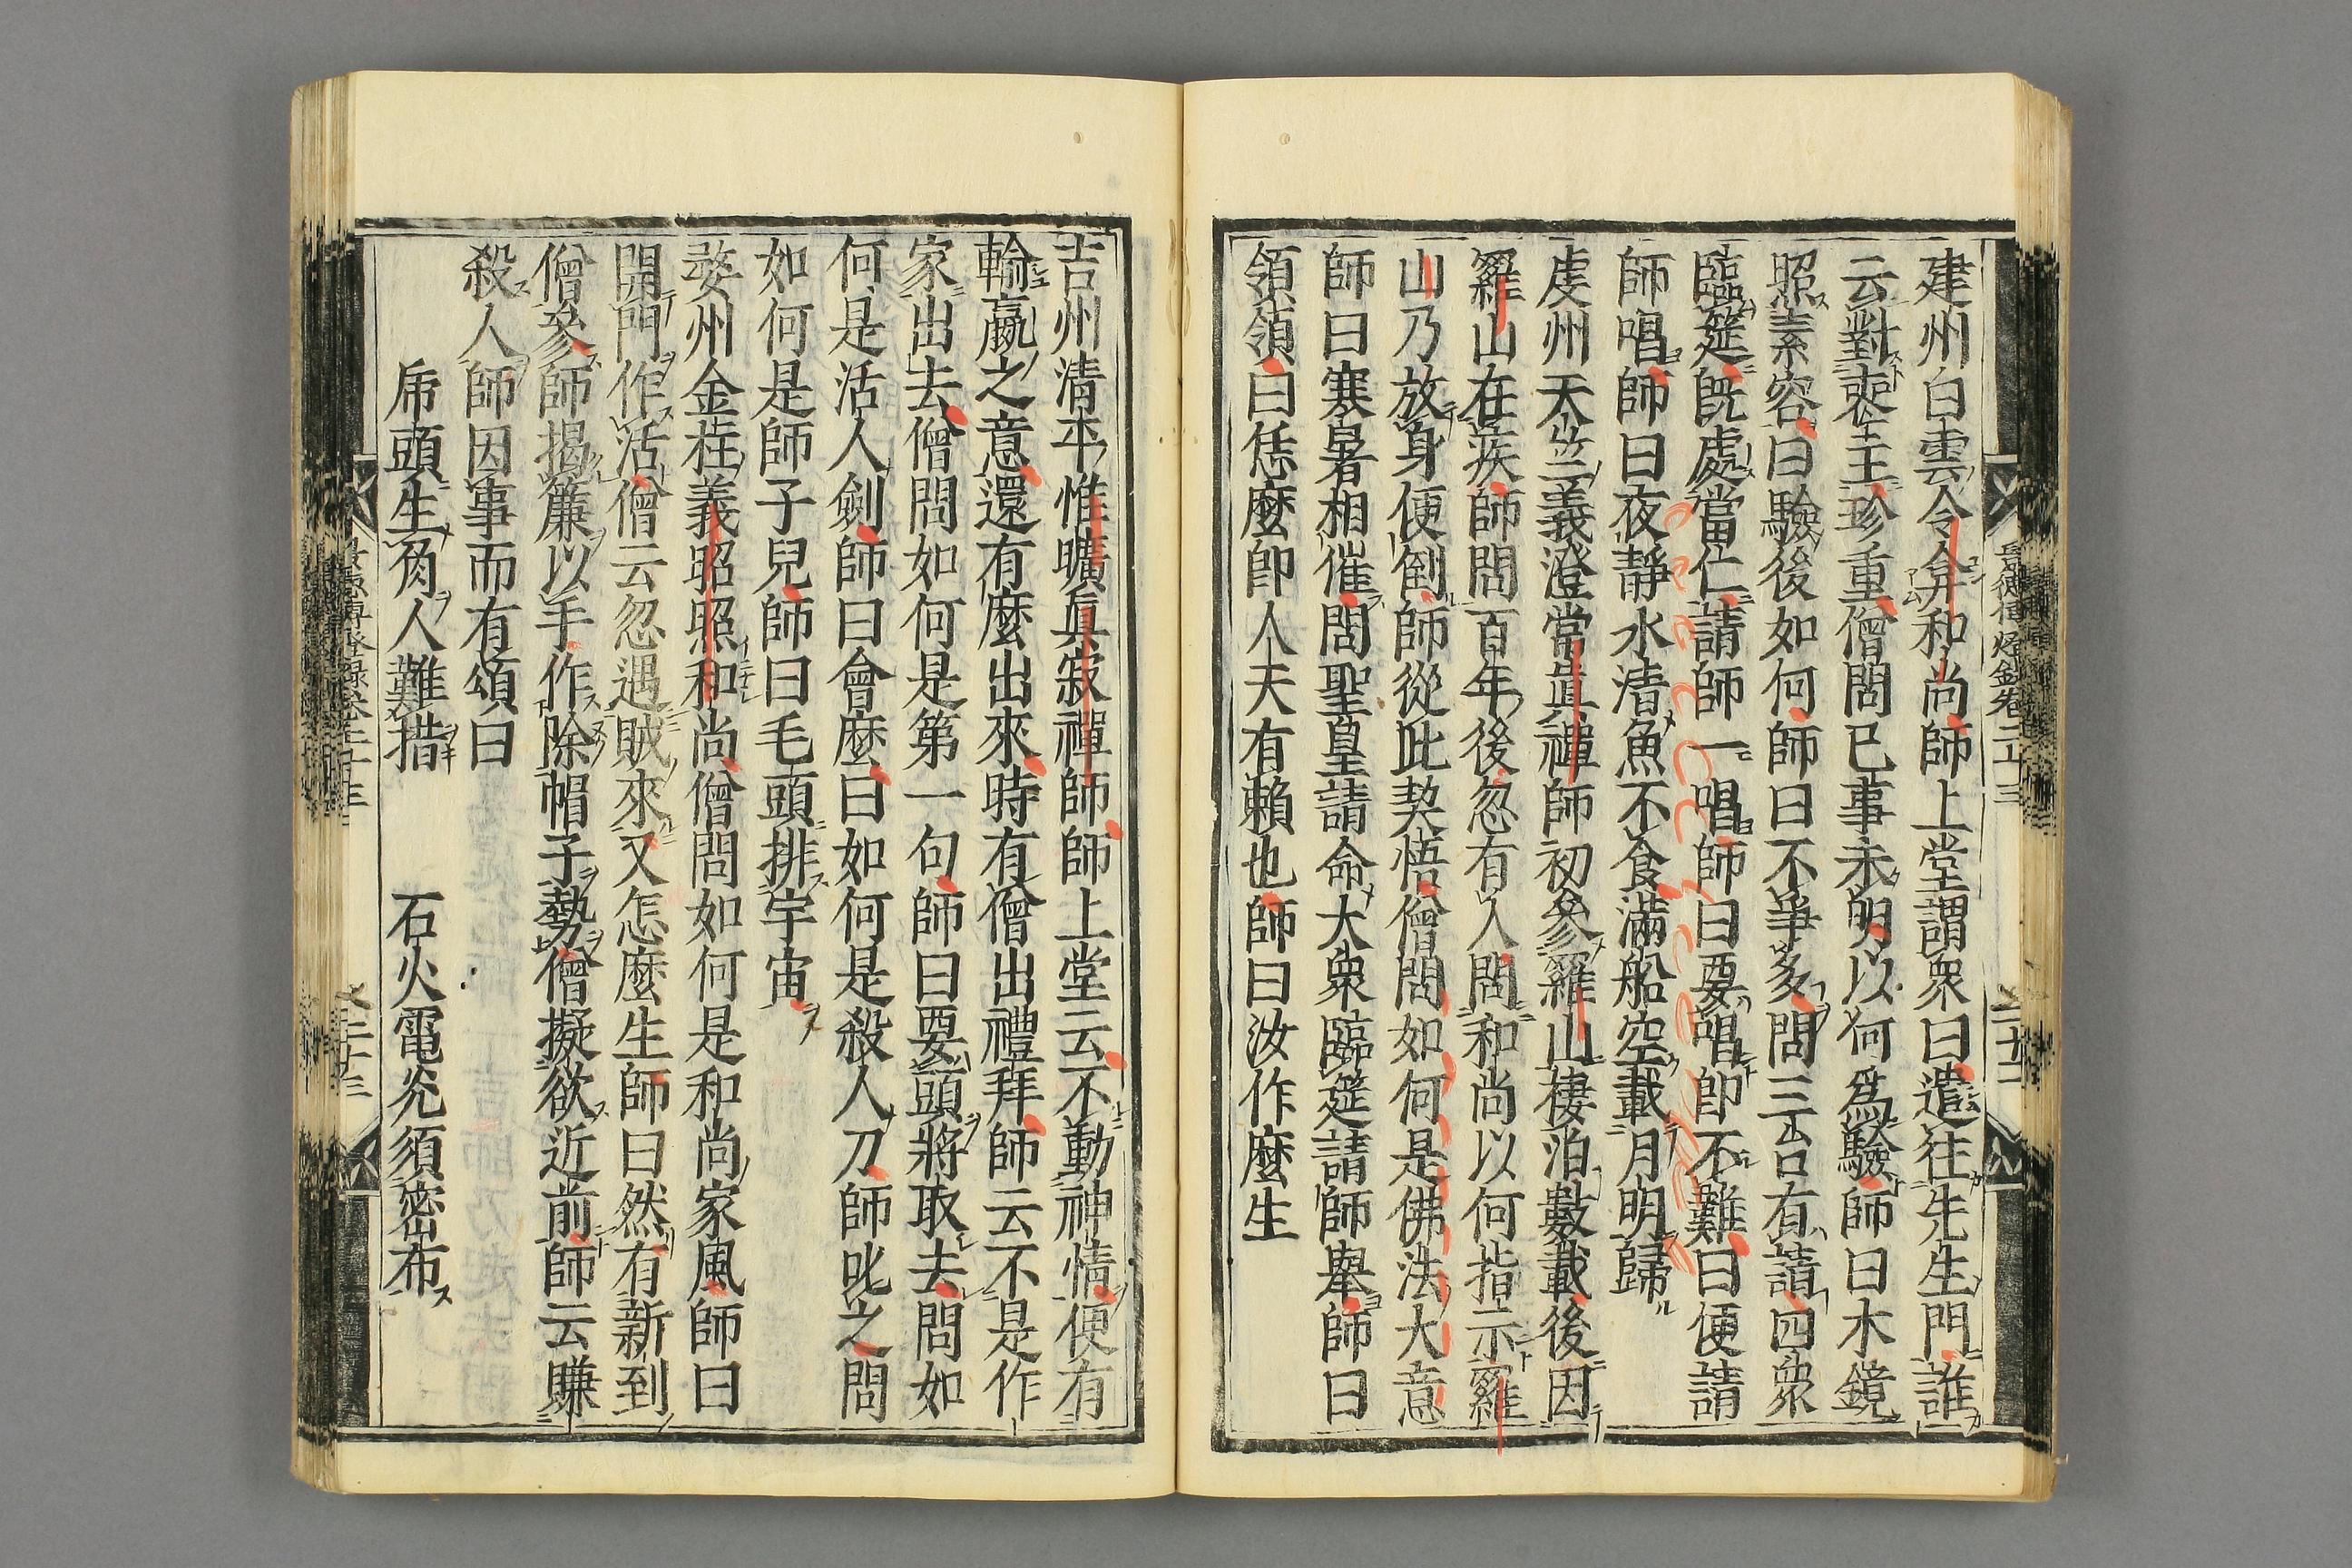 景德傳燈錄卷二十三
二十二
建州白雲令弇和尚師上堂謂衆曰遣往先生門誰
云對喪主珍重僧問已事未明以何爲驗師曰木鏡
照素容曰驗後如何師曰不爭多問三台有請四衆
臨筵旣處當仁請師一唱師曰要唱卽不難曰便請
師唱師曰夜靜水淸魚不食滿船空載月明歸
虔州天竺義澄常眞禪師初參羅山棲泊數載後因
羅山在疾師問百年後忽有人問和尚以何指示羅
山乃放身便倒師從此契悟僧問如何是佛法大意
師曰寒暑相催問聖皇請命大衆臨筵請師舉師曰
領領曰恁麼卽人天有賴也師曰汝作麼生
吉州清平惟曠眞寂禪師師上堂云不動神情便有
輸贏之意還有麼出來時有僧出禮拜師云不是作
家出去僧問如何是第一句師曰要頭將取去問如
何是活人劍師曰會麼曰如何是殺人刀師叱之問
如何是師子兒師曰毛頭排宇宙
婺州金柱義昭照和尚僧問如何是和尚家風師曰
開門作活僧云忽遇賊來又怎麼生師曰然有新到
僧參師揭簾以手作除帽子勢僧擬欲近前師云賺
殺人師因事而有頌曰
虎頭生角人難措　石火電光須密布
景德傳燈錄卷二十三
二十三